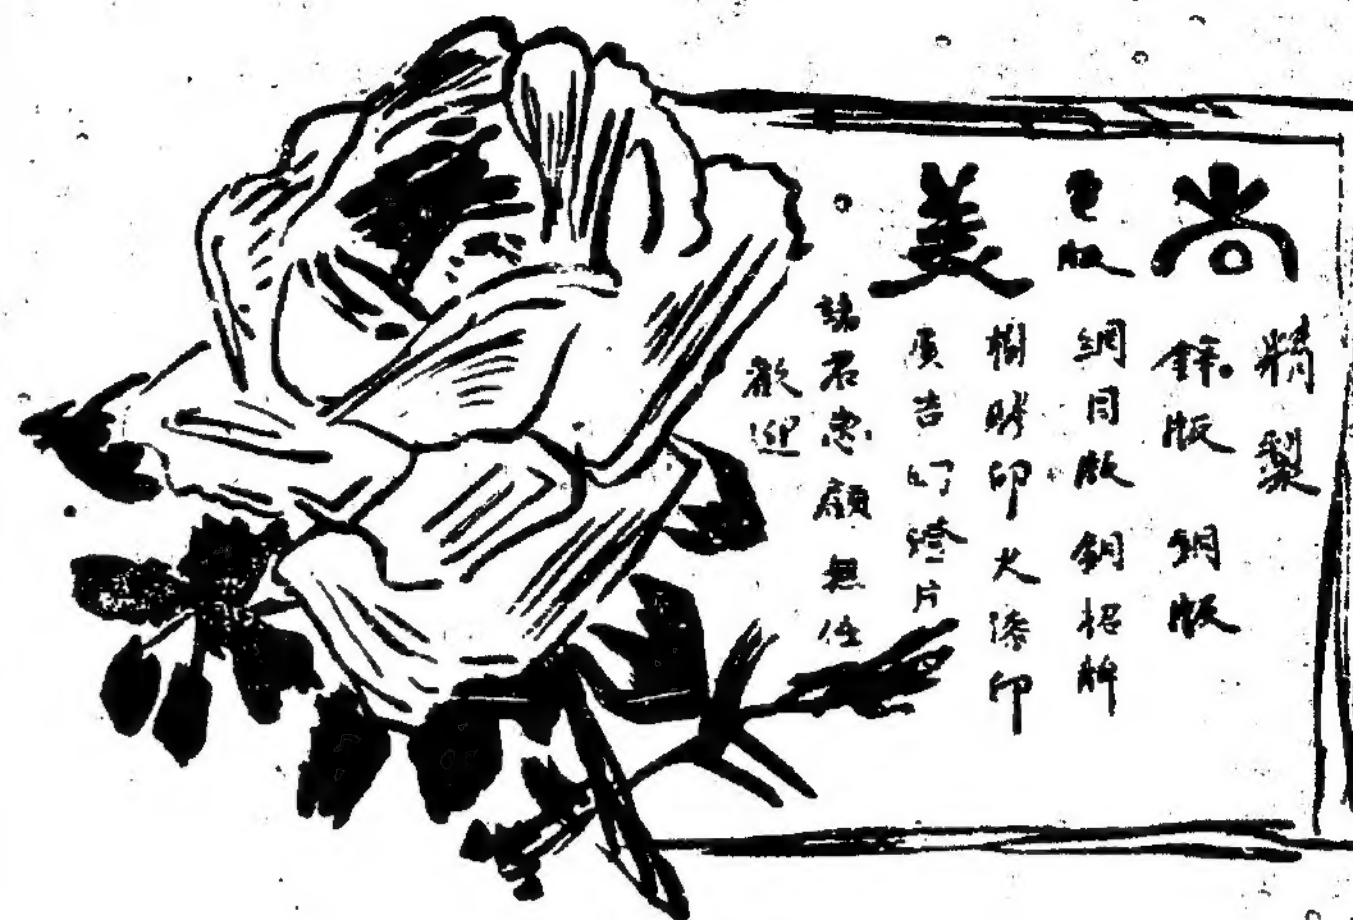 尚美
電版
精製
鋅版 銅版
網目版 銅招牌
樹膠印 火漆印
廣告幻燈片
諸君惠顧無任
歡迎